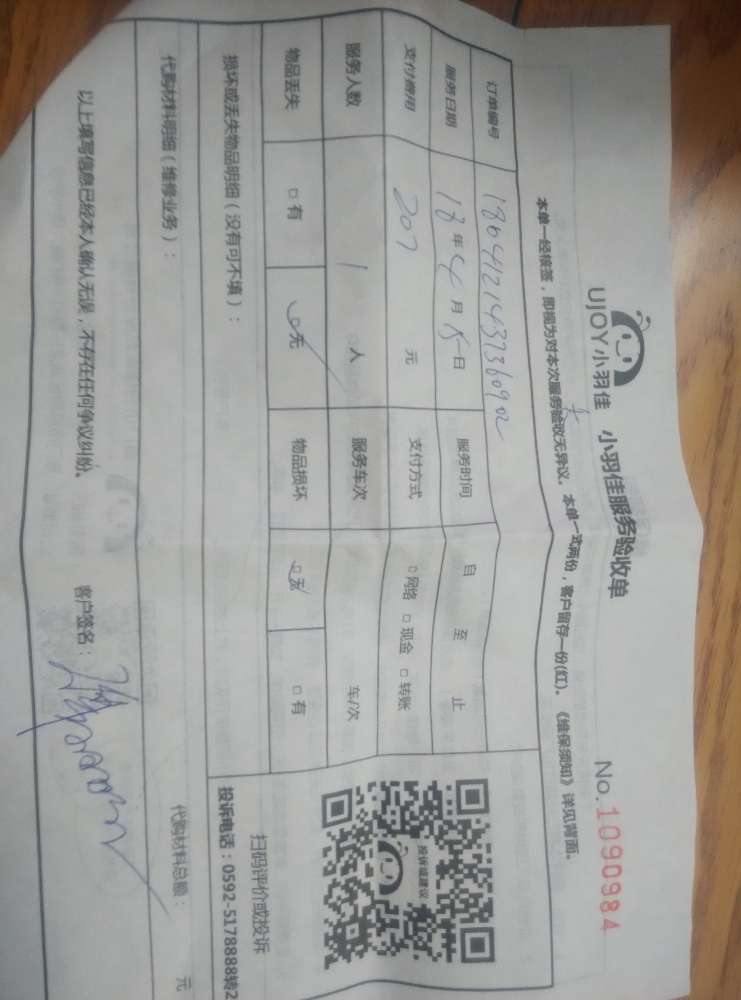 UJOY小羽佳 小羽佳服务验收单 No.1090984
本单一经核签，即视为对本次服务验收无异议。本单一式两份，客户留存一份(红)。《维保须知》详见背面。
订单编号
服务日期 18年4月15日 服务时间 自 至 止
支付费用 207 元 支付方式 □网络 □现金 □转账
服务人数 1 □人 服务车次 车/次
物品丢失 □有 □无 物品损坏 □无 □有
损坏或丢失物品明细（没有可不填）：
投诉或建议
扫码评价或投诉
投诉电话：0592-5178888转2
代购材料明细（维修业务）：
代购材料总额： 元
以上填写信息已经本人确认无误，不存在任何争议纠纷。 客户签名：